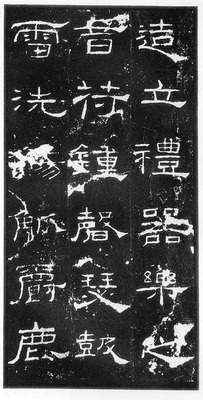 造立禮器樂之
音苻鍾磬瑟鼓
雷洗觴觚爵鹿